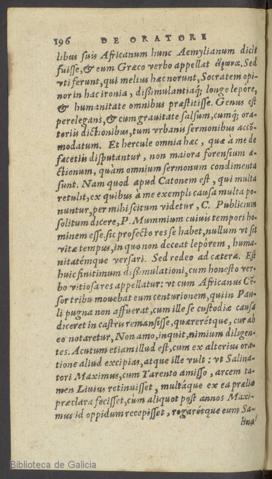 196 DE ORATORE
libus suis Africanum hunc Aemylianum dicit
fuisse, & eum Græco verbo appellat εἴρωνα, Sed
vti ferunt, qui melius hæc norunt, Socratem opi-
nor in hac ironia, dissimulantiaq́; longe lepore,
& humanitate omnibus præstitisse. Genus est
perelegans, & cum grauitate salsum, cumq́; ora-
toriis dictionibus, tum vrbanis sermonibus accõ-
modatum. Et hercule omnia hæc, quæ à me de
facetiis disputantur, non maiora forensium a-
ctionum, quàm omnium sermonum condimenta
sunt. Nam quod apud Catonem est, qui multa
retulit, ex quibus à me exempli causa multa po-
nuntur, per mihi scitum videtur, C. Publicium
solitum dicere, P. Mummium cuiuis tempori ho-
minem esse. sic profecto res se habet, nullum vt sit
vitæ tempus, in quo non deceat lepórem, huma-
nitatémque versari. Sed redeo ad cætera. Est
huic finitimum dissimulationi, cum honesto ver-
bo vitiosa res appellatur: vt cum Africanus Cẽ-
sor tribu mouebat eum centurionem, qui in Pau-
li pugna non affuerat, cum ille se custodiæ causa
diceret in castris remansisse, quæreretque, cur ab
eo notaretur, Non amo, inquit, nimium diligen-
tes. Acutum etiam illud est, cum ex alterius ora-
tione aliud excipias, atque ille vult: vt Salina-
tori Maximus, cum Tarento amisso, arcem ta-
men Liuius retinuisset, multáque ex ea prælia
præclara fecisset, cum aliquot post annos Maxi-
mus id oppidum recepisset, rogarétque eum Sa-
lina
Biblioteca de Galicia